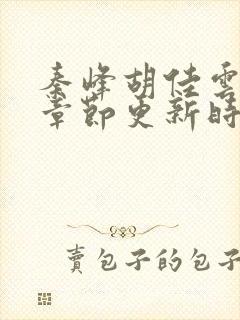 秦峰胡佳雲
章節更新時
賣包子的包子